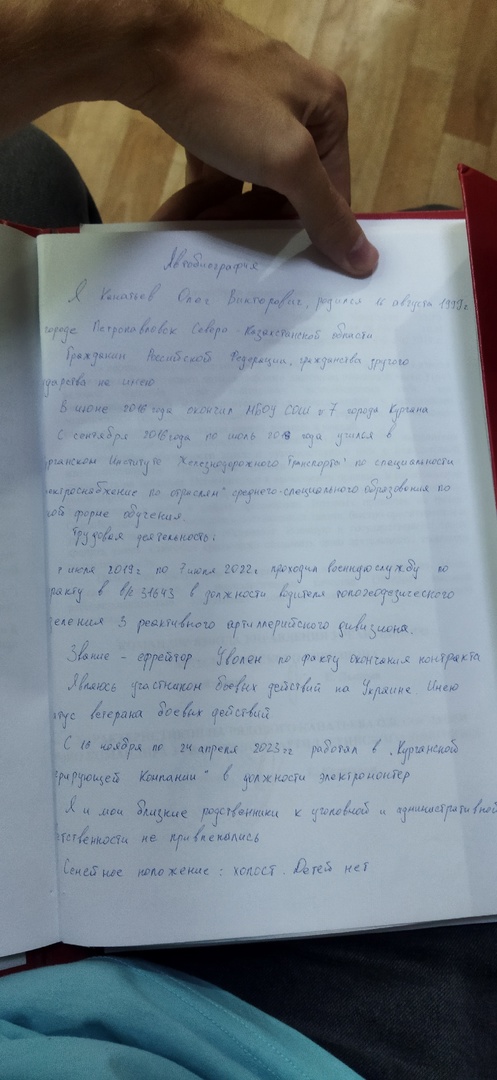 Автобиография
Я Викторович, родился 16 августа 1999г
городе Петропавловск Северо-Казахстанской области
Гражданин Российской Федерации, гражданства другого
ударства не имею
В июне 2016 года окончил МБОУ СОШ №7 города Кургана
С сентября 2016 года по июль 2019 года учился в
рганском Институте Железнодорожного Транспорта" по специальности
ектроснабжение по отраслям" среднего-специального образования по
ной форме обучения.
Трудовая деятельность:
июля 2019г по 7 июля 2022г проходил военную службу по
ракту в в/ч 31643 в должности водителя топогеодезического
еления 3 реактивного артиллерийского дивизиона.
Звание - ефрейтор Уволен по факту окончания контракта
Являюсь участником боевых действий на Украине. Имею
тус ветерана боевых действий
С 16 ноября по 24 апреля 2023гг работал в "Курганской
рирующей Компании" в должности электромонтер
Я и мои близкие родственники к уголовной и административной
тственности не привлекались
Семейное положение: холост. Детей нет